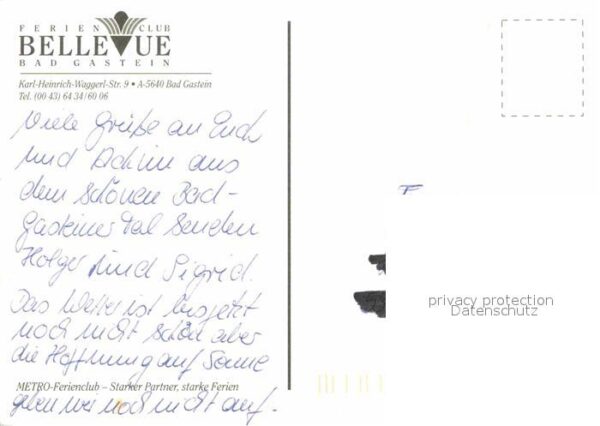 FERIEN CLUB
BELLEVUE
BAD GASTEIN
Karl-Heinrich-Waggerl-Str. 9 • A-5640 Bad Gastein
Tel. (00 43) 64 34/60 06
Viele Grüße an Euch
und Achim aus
dem schönen Bad-
Gasteiner Tal senden
Holger und Sigrid.
Das Wetter ist bis jetzt
noch nicht schön aber
die Hoffnung auf Sonne
METRO-Ferienclub – Starker Partner, starke Ferien
geben wir noch nicht auf.
privacy protection
Datenschutz